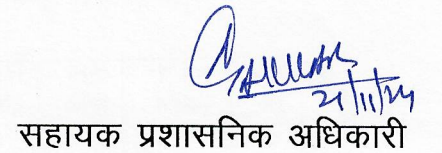 21/11/24
सहायक प्रशासनिक अधिकारी